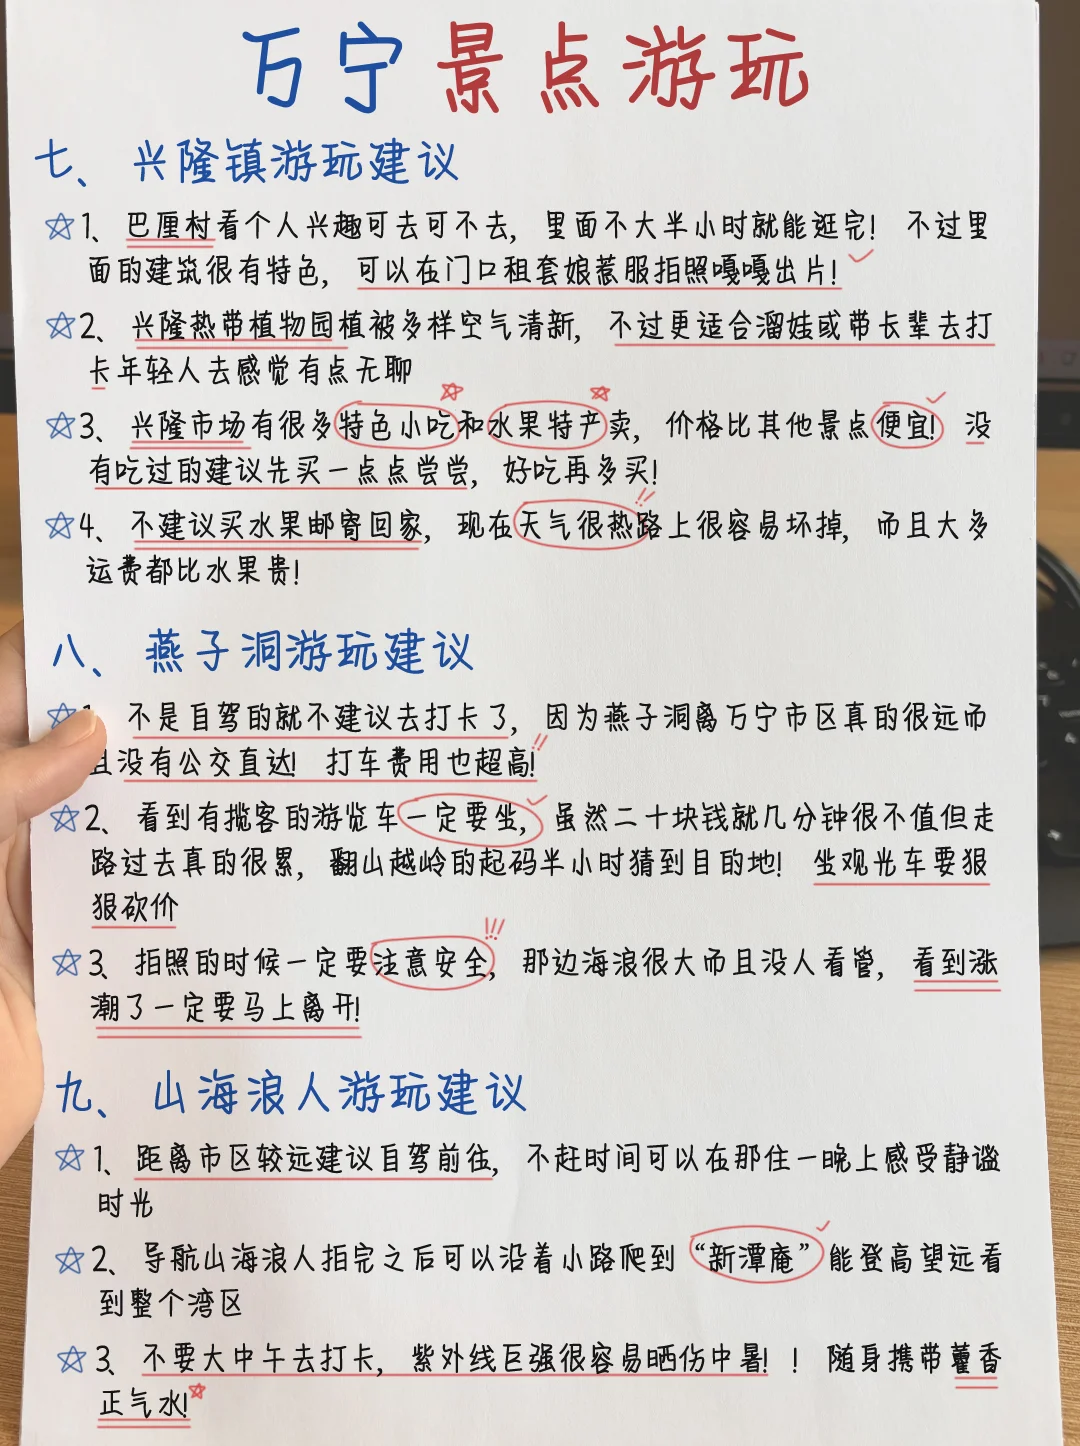 万宁景点游玩
七、兴隆镇游玩建议
☆1、巴厘村看个人兴趣可去可不去，里面不大半小时就能逛完！不过里
面的建筑很有特色，可以在门口租套娘惹服拍照嘎嘎出片！
☆2、兴隆热带植物园植被多样空气清新，不过更适合溜娃或带长辈去打
卡年轻人去感觉有点无聊
☆3、兴隆市场有很多特色小吃和水果特产卖，价格比其他景点便宜！没
有吃过的建议先买一点点尝尝，好吃再多买！
☆4、不建议买水果邮寄回家，现在天气很热路上很容易坏掉，而且大多
运费都比水果贵！
八、燕子洞游玩建议
☆1、不是自驾的就不建议去打卡了，因为燕子洞离万宁市区真的很远而
且没有公交直达！打车费用也超高！
☆2、看到有揽客的游览车一定要坐，虽然二十块钱就几分钟很不值但走
路过去真的很累，翻山越岭的起码半小时猜到目的地！坐观光车要狠
狠砍价
☆3、拍照的时候一定要注意安全，那边海浪很大而且没人看管，看到涨
潮了一定要马上离开！
九、山海浪人游玩建议
☆1、距离市区较远建议自驾前往，不赶时间可以在那住一晚上感受静谧
时光
☆2、导航山海浪人拍完之后可以沿着小路爬到“新潭庵”能登高望远看
到整个湾区
☆3、不要大中午去打卡，紫外线巨强很容易晒伤中暑！！随身携带藿香
正气水！